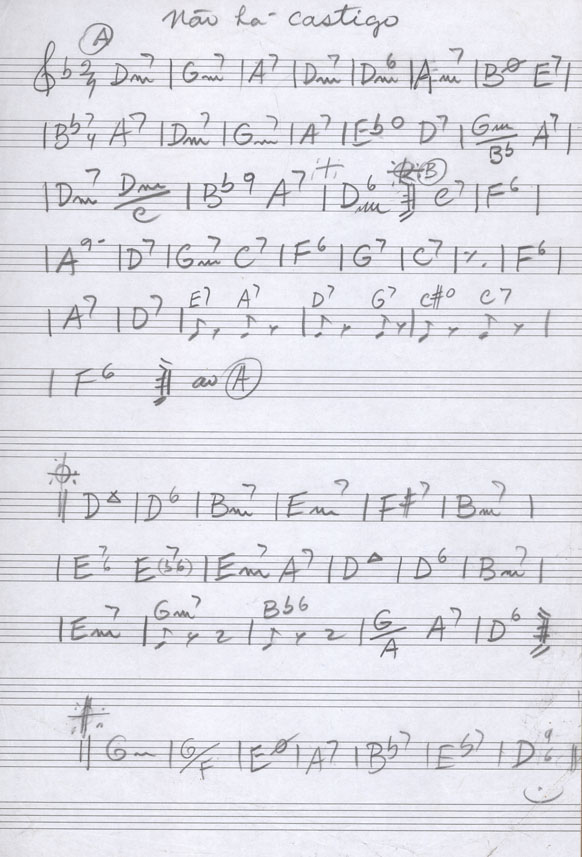 Não há castigo
A
2/4 Dm7 | Gm7 | A7 | Dm7 | Dm6 | Am7 | Bø E7 |
| Bb7 A7 | Dm7 | Gm7 | A7 | Ebo D7 | Gm/Bb A7 |
| Dm7 Dm/C | Bb9 A7 | Dm6 B C7 | F6 |
| A9- | D7 | Gm7 C7 | F6 | G7 | C7 | ٪ | F6 |
| A7 | D7 | E7 A7 | D7 G7 | C#o C7 |
| F6 ao A
|| DΔ | D6 | Bm7 | Em7 | F#7 | Bm7 |
| E7/6 E7(b6) | Em7 A7 | DΔ | D6 | Bm7 |
| Em7 | Gm7 | Bb6 | G/A A7 | D6
|| Gm | G/F | Eø | A7 | Bb7 | Eb7 | D9/6 ||